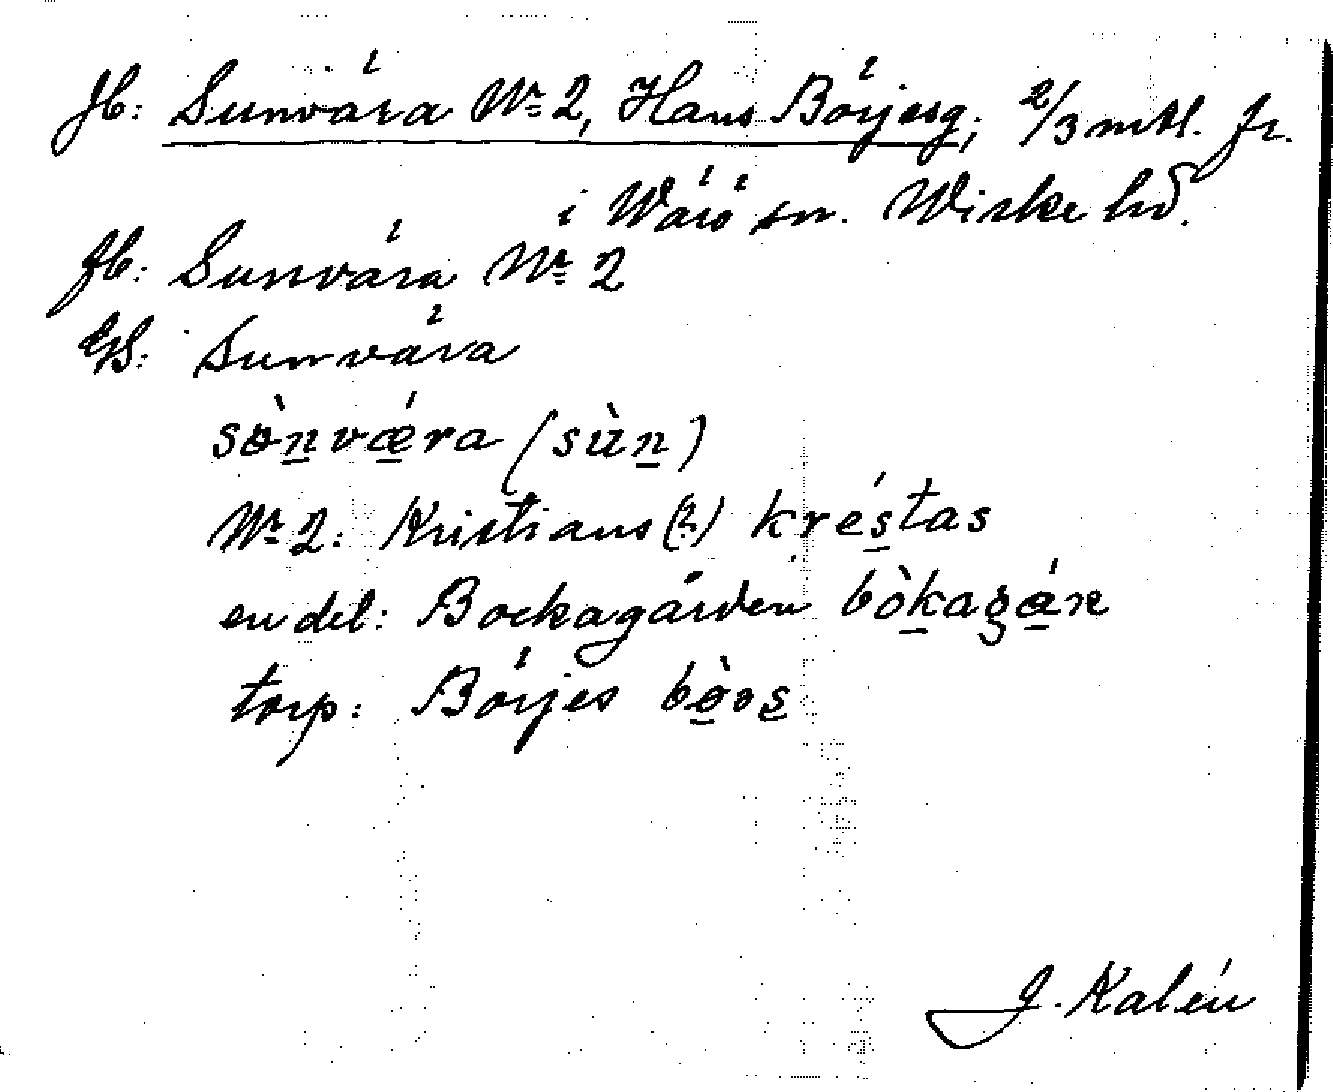 Jb: Sunvära Nr 2, Hans Börjesg, 2/3 mtl. fr.
i Wärö sn. Wiske hd.
Jb: Sunvära Nr 2
GS: Sunvära
sònvǽra (sùn)
Nr 2: Kristians (?) kréstas
en del: Bockagården bòkagáṛ
torp: Börjes bòrs
J. Kalén